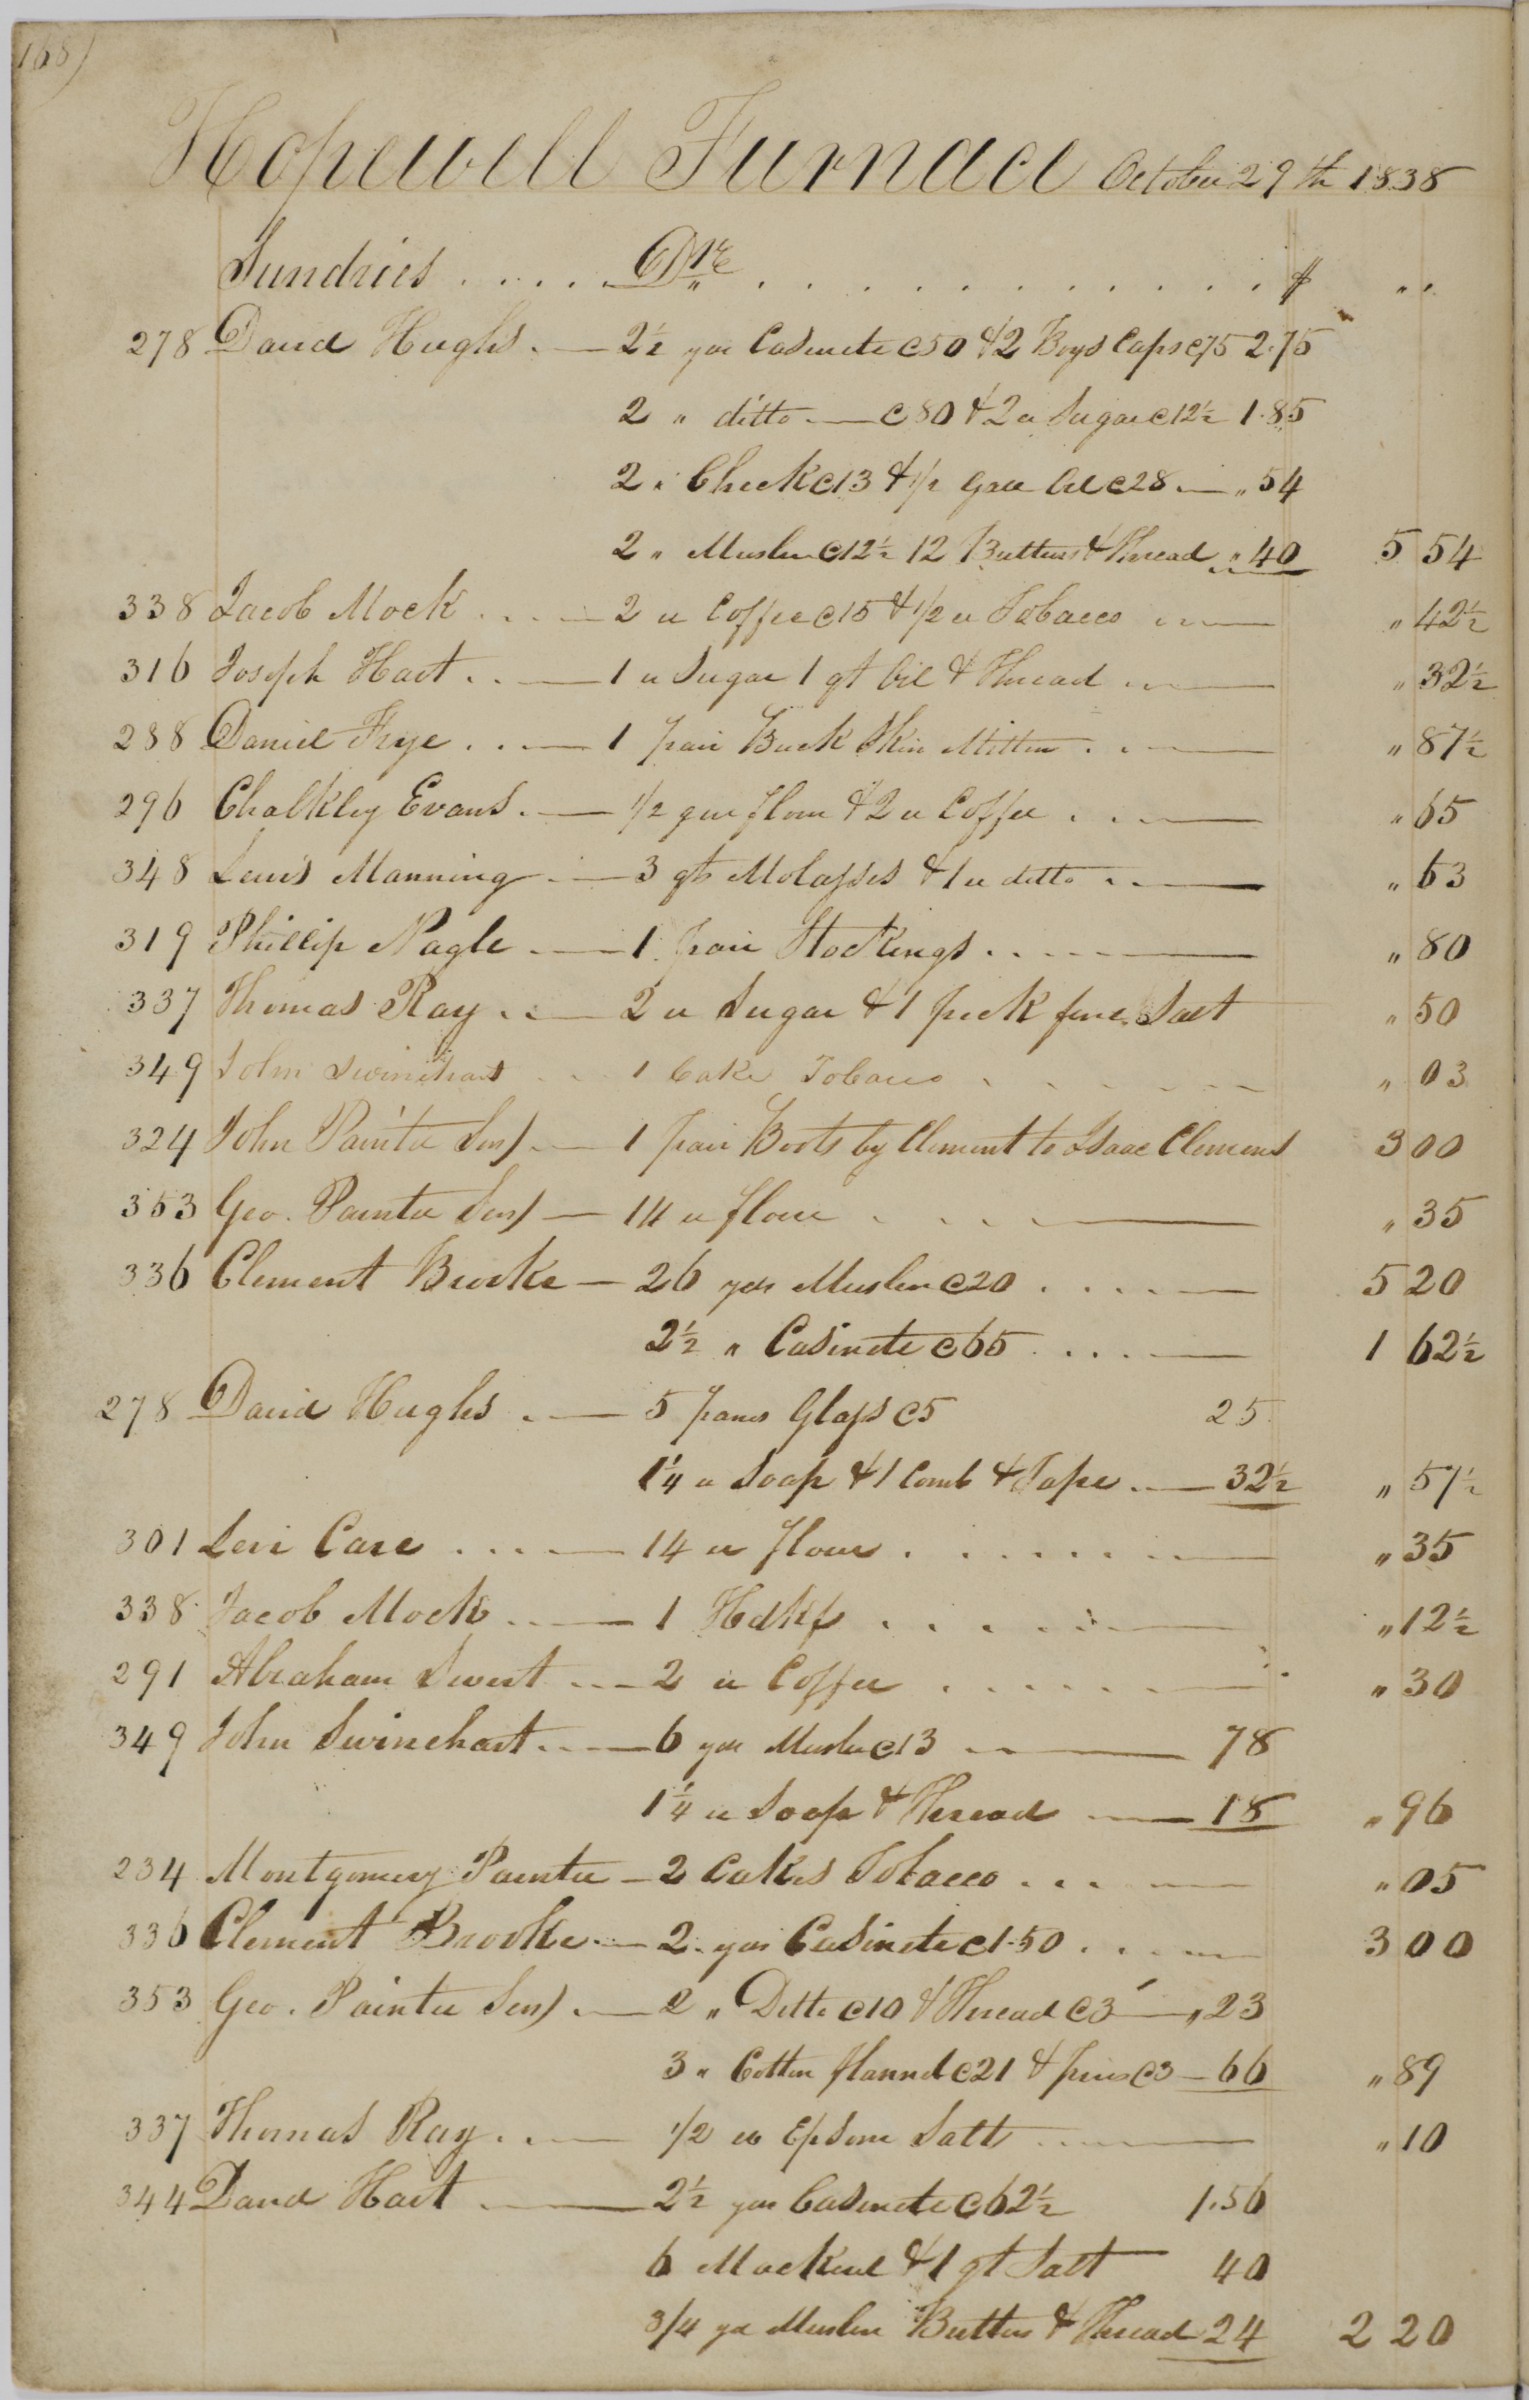 168)
Hopewell Furnace October 29th 1838
Sundries . . . . . Drs . . . . . . . . . . . $ " "
278 David Hughs . — 2½ yds Casinete c50 & 2 Boys Caps c75 2.75
2 " ditto . — c80 & 2 lb Sugar c12½ 1.85
2 " Check c13 & 1/2 Gall Oil c28 . — " 54
2 " Muslin c12½ 12 Buttons & Thread " 40 5 54
338 Jacob Mock . . . — 2 lb Coffee c15 & 1/2 lb Tobacco . . — " 42½
316 Joseph Hart . . — 1 lb Sugar 1 qt Oil & Thread . . — " 32½
288 Daniel Frye . . . — 1 pair Buck Skin Mittens . . — " 87½
296 Chalkley Evans . — 1/2 qur flour & 2 lb Coffee . . . — " 65
348 Lewis Manning . — 3 qts Molasses & 1 lb ditto . . . — " 63
319 Phillip Nagle . — 1 pair Stockings . . . . — " 80
337 Thomas Ray . . — 2 lb Sugar & 1 peck fine Salt " 50
349 John Swinehart . . 1 Cake Tobacco . . . . . . " 03
324 John Painter Senr . — 1 pair Boots by Clement to Isaac Clemens 3 00
353 Geo. Painter Senr — 14 lb flour . . . . — " 35
336 Clement Brooke — 26 yds Muslin c20 . . . . — 5 20
2½ " Casinete c65 . . . . — 1 62½
278 David Hughs . — 5 panes Glass c5 25
1¼ lb Soap & 1 Comb & Tape . — 32½ " 57½
301 Levi Care . . . . — 14 lb flour . . . . . . — " 35
338 Jacob Mock . . — 1 Hdkf . . . . . . — " 12½
291 Abraham Swert . . — 2 lb Coffee . . . . . . — " 30
349 John Swinehart . . — 6 yds Muslin c13 — 78
1¼ lb Soap & Thread — 18 " 96
234 Montgomery Painter — 2 Cakes Tobacco . . . — " 05
336 Clement Brooke . — 2 yds Casinete c1.50 . . . . — 3 00
353 Geo. Painter Senr . — 2 " Ditto c10 & Thread c3 — " 23
3 " Cotton flannel c21 & pins c3 — 66 " 89
337 Thomas Ray . . — 1/2 lb Epsom Salts . . . — " 10
344 David Hart — 2½ yds Casinete c62½ 1.56
6 Mackerel & 1 qt Salt 40
3/4 yd Muslin Buttons & Thread 24 2 20